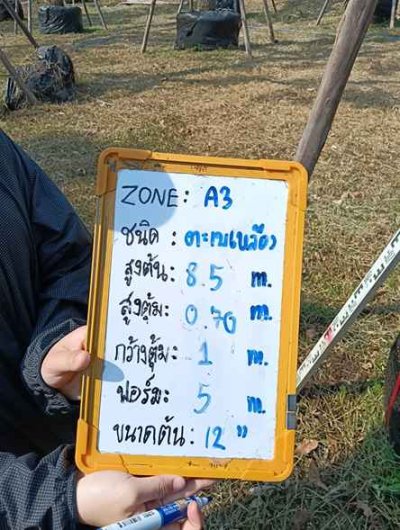 ZONE: A3
ชนิด: ตะแบกเหลือง
สูงต้น: 8.5 m.
สูงตุ้ม: 0.70 m.
กว้างตุ้ม: 1 m.
ฟอร์ม: 5 m.
ขนาดต้น: 12"